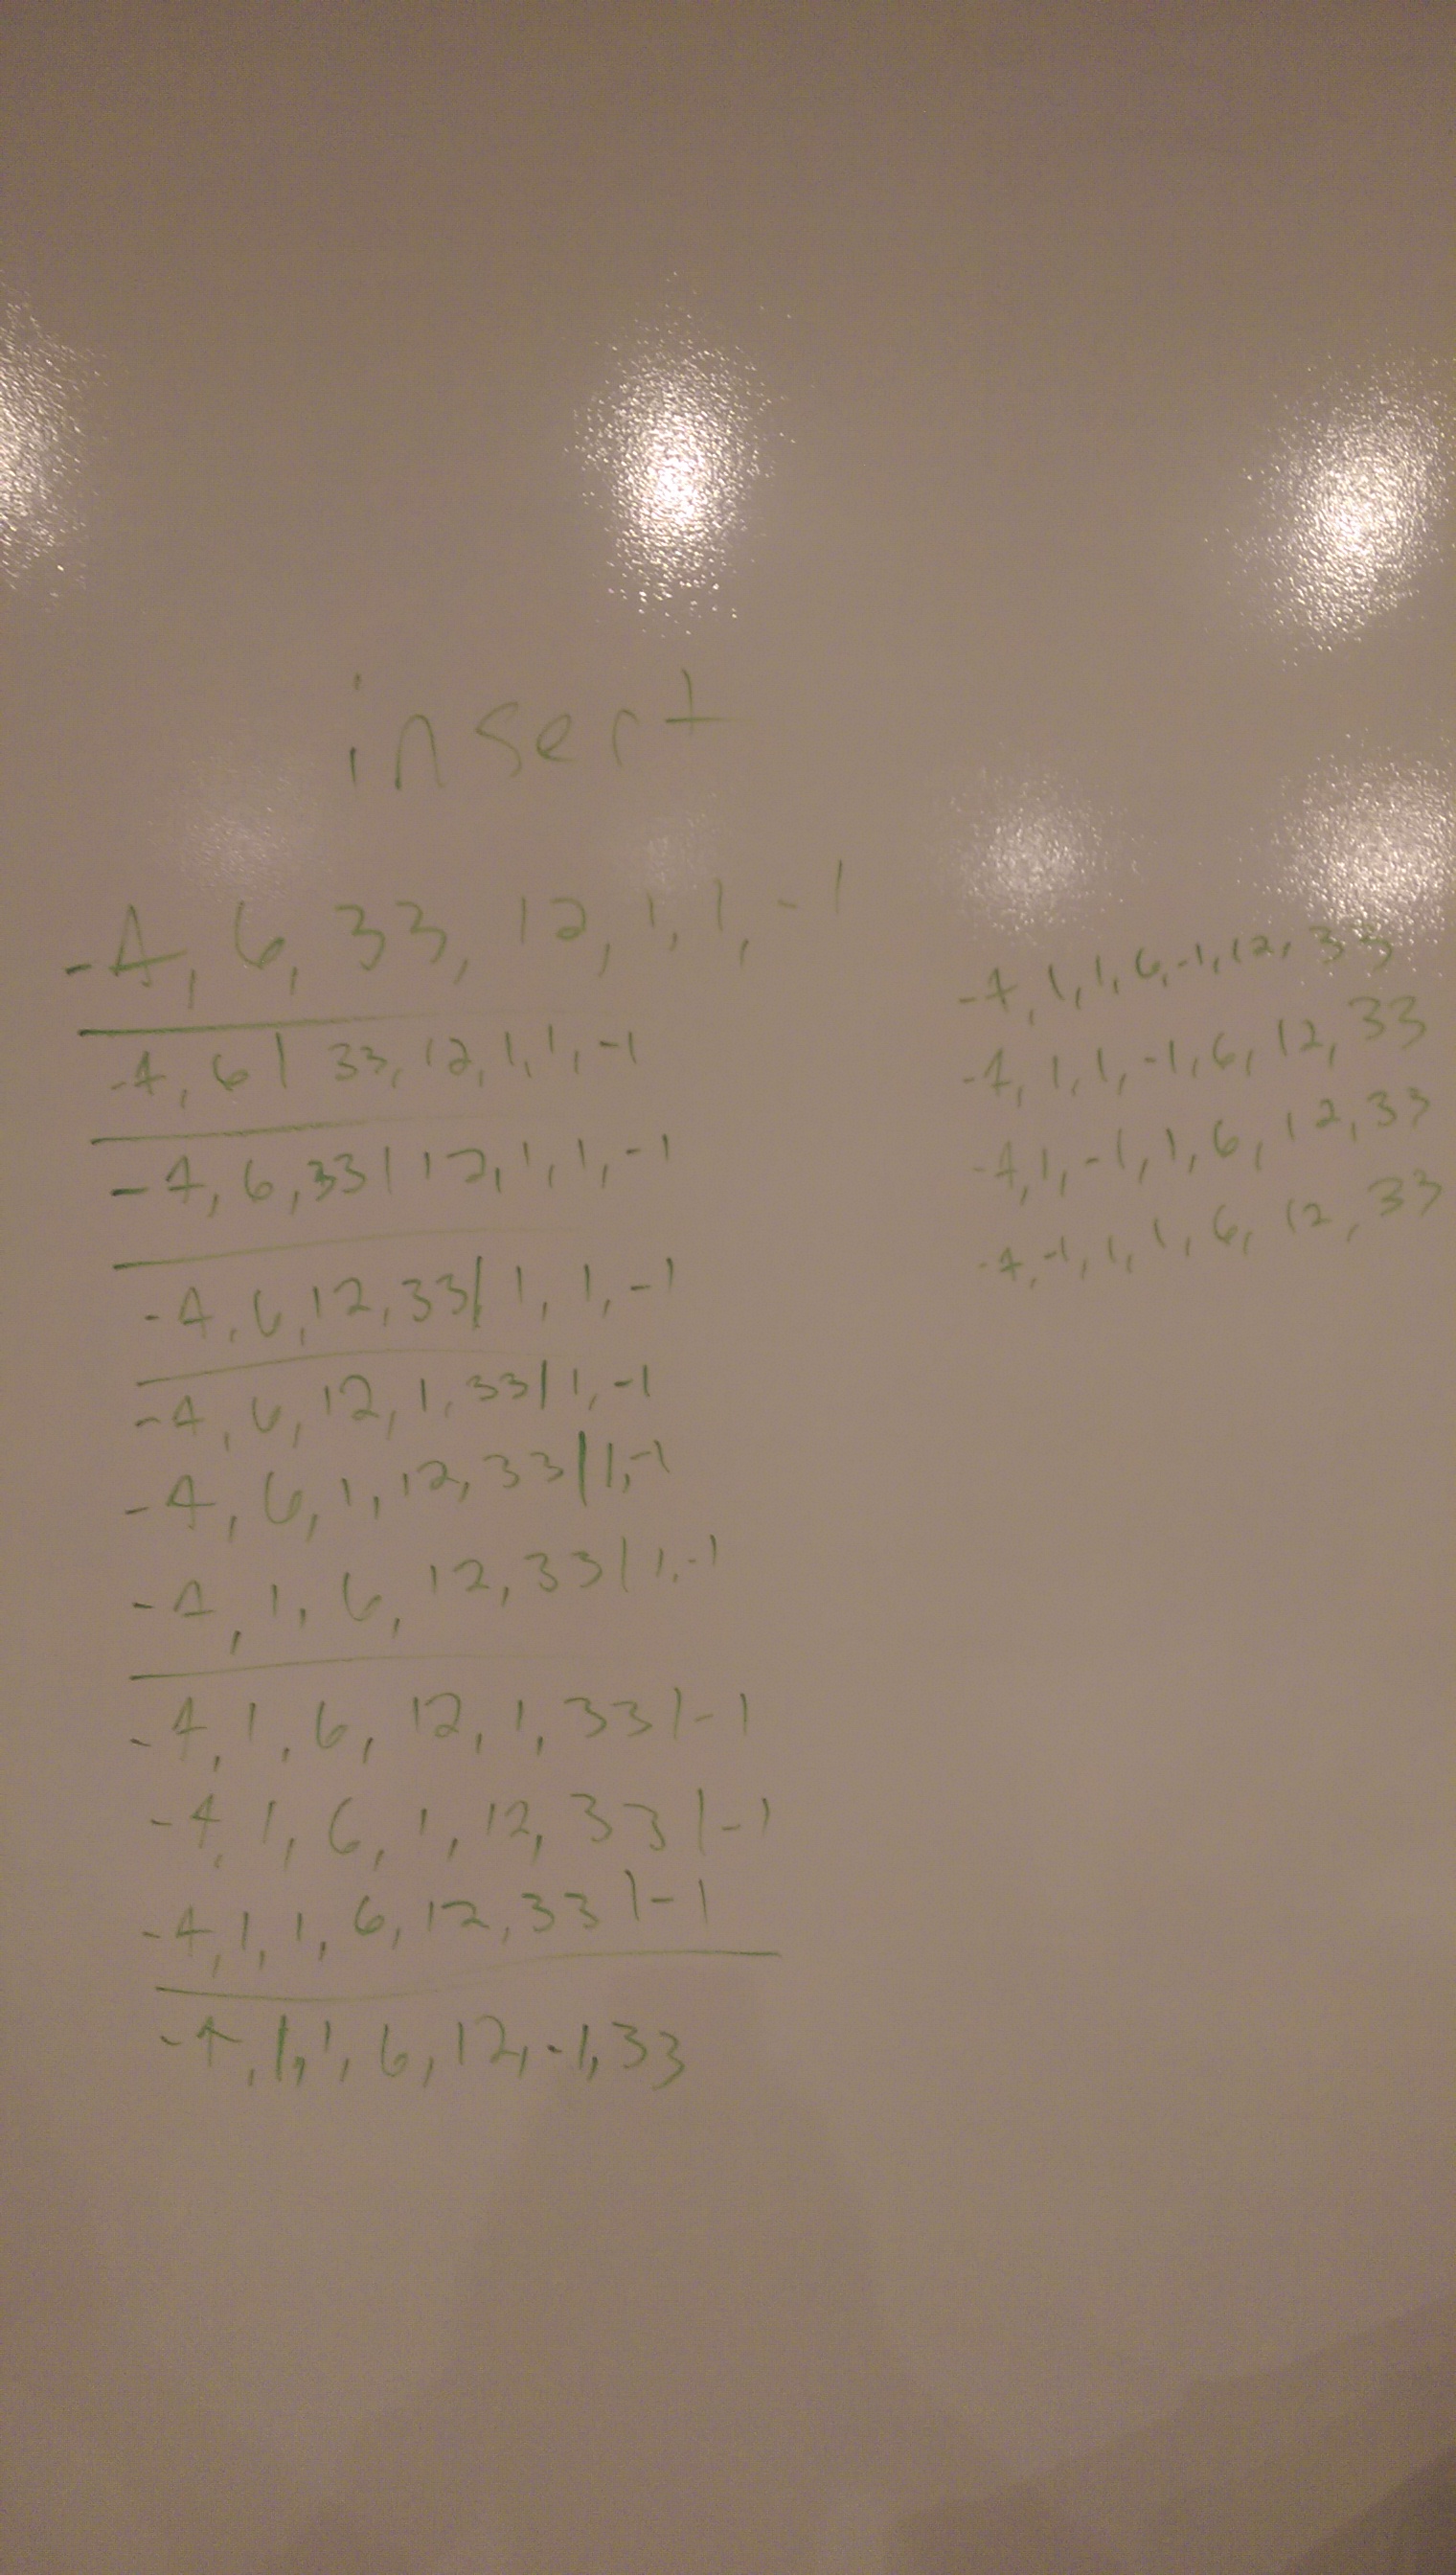 insert
-4, 6, 33, 12, 1, 1, -1
-4, 6 | 33, 12, 1, 1, -1
-4, 6, 33 | 12, 1, 1, -1
-4, 6, 12, 33 | 1, 1, -1
-4, 6, 12, 1, 33 | 1, -1
-4, 6, 1, 12, 33 | 1, -1
-4, 1, 6, 12, 33 | 1, -1
-4, 1, 6, 12, 1, 33 | -1
-4, 1, 6, 1, 12, 33 | -1
-4, 1, 1, 6, 12, 33 | -1
-4, 1, 1, 6, 12, -1, 33
-4, 1, 1, 6, -1, 12, 33
-4, 1, 1, -1, 6, 12, 33
-4, 1, -1, 1, 6, 12, 33
-4, -1, 1, 1, 6, 12, 33